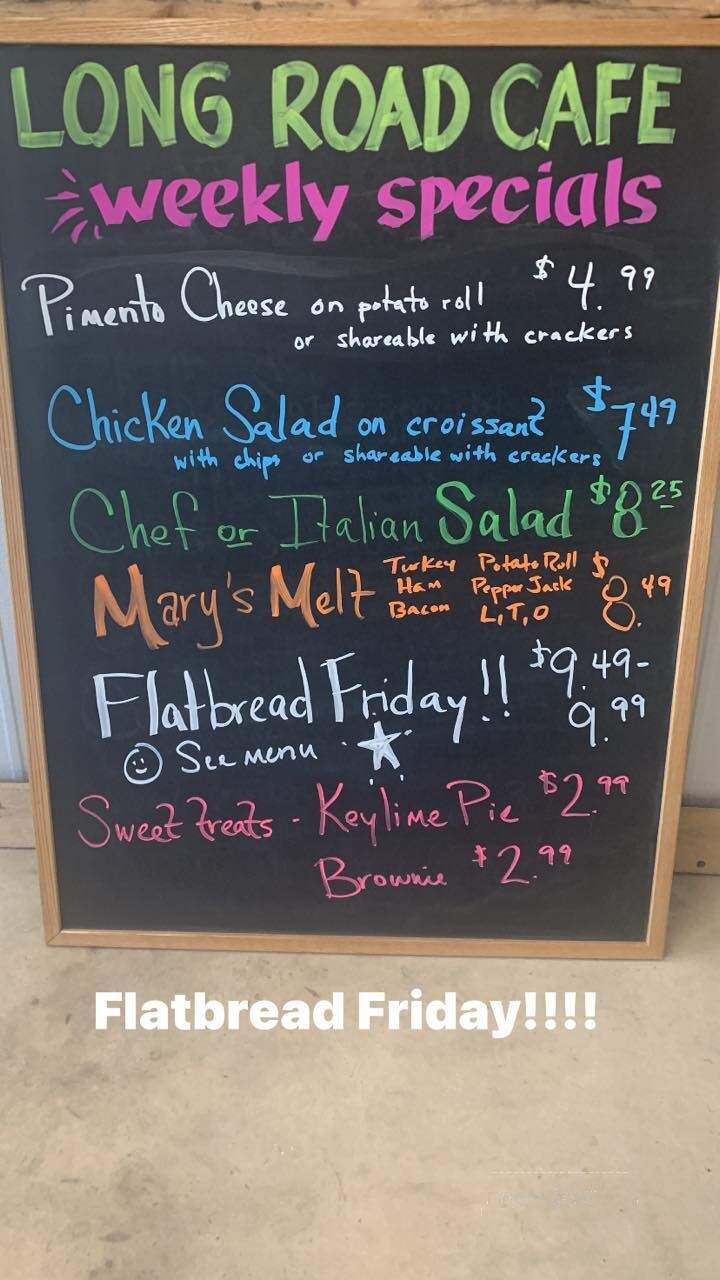 LONG ROAD CAFE
weekly specials
Pimento Cheese on potato roll $4.99
or shareable with crackers
Chicken Salad on croissant $7.49
with chips or shareable with crackers
Chef or Italian Salad $8.25
Mary's Melt Turkey Potato Roll $8.49
Ham Pepper Jack
Bacon L,T,O
Flatbread Friday!! $9.49-
9.99
See menu
Sweet treats - Keylime Pie $2.99
Brownie $2.99
Flatbread Friday!!!!